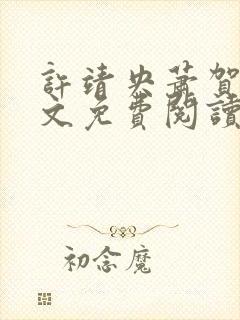 許靖央蕭賀
文免費閱讀
初念魔